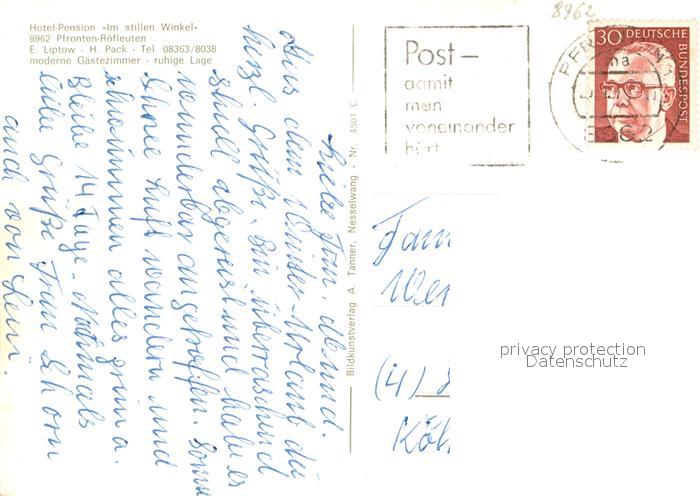 Hotel-Pension »Im stillen Winkel«
8962 Pfronten-Röfleuten
E. Liptow · H. Pack · Tel. 08363/8038
moderne Gästezimmer · ruhige Lage
8962
Post-
damit
man
voneinander
hört
30 DEUTSCHE
BUNDESPOST
PFRONTEN
Liebe Fam.
Aus dem Winter-Urlaub die
herzl. Grüße. Bin überraschend
schnell abgereist und habe es
wunderbar angetroffen. Sonne
Schnee Luft wandern und
schwimmen alles prima.
Bleibe 14 Tage - Nochmals
liebe Grüße Frau Schorn
auch von
Bildkunstverlag A. Tanner, Nesselwang · Nr. 4501 C
Fam
Wer
(4)
Köl
privacy protection
Datenschutz